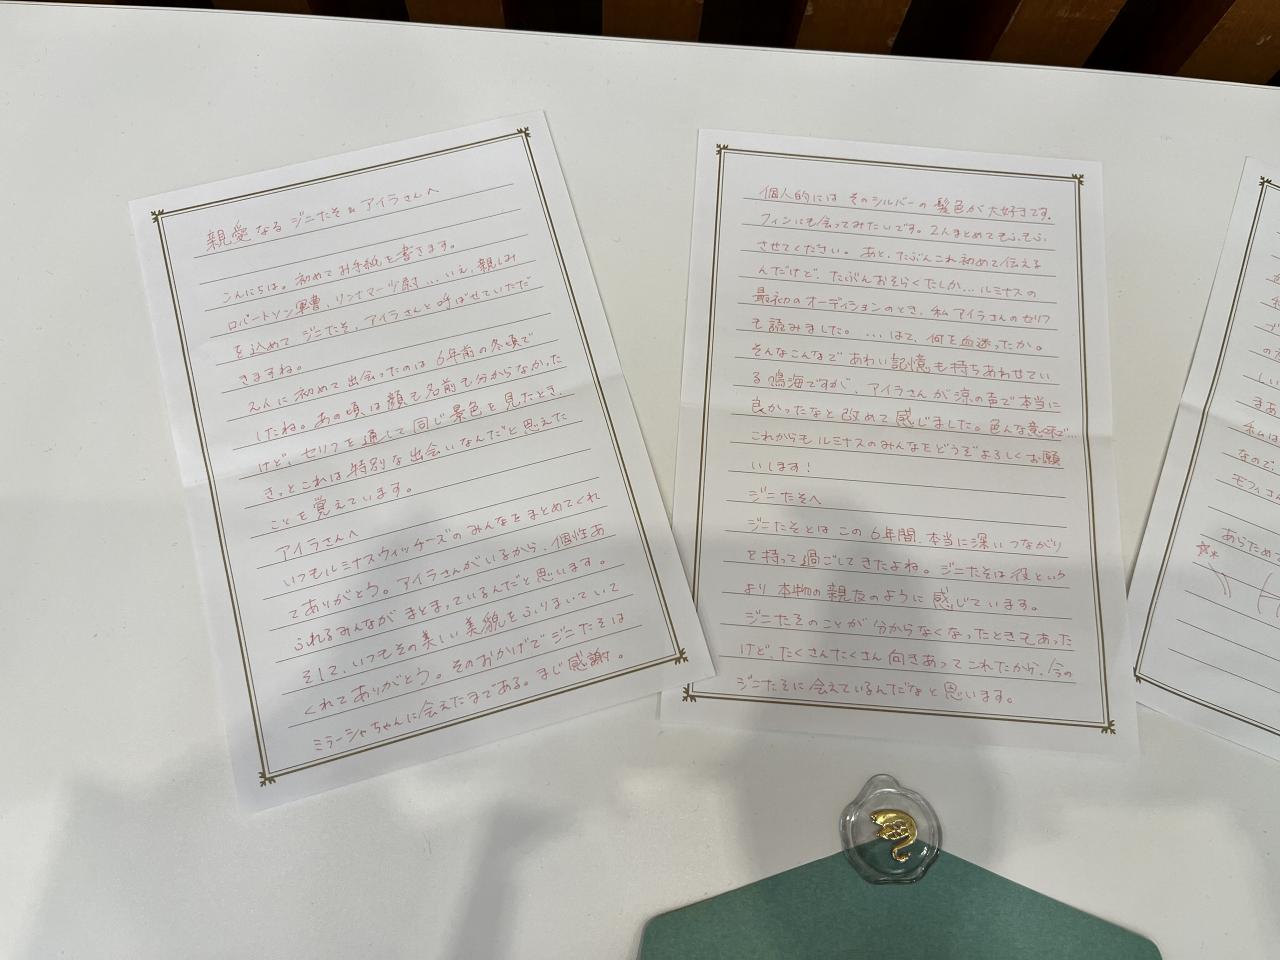 親愛なる ジニたそ& アイラさんへ
こんにちは。初めてお手紙を書きます。
ロバートソン軍曹、リンナマーツ尉…いえ、親しみ
を込めて ジニたそ、アイラさんと呼ばせていただ
きますね。
2人に初めて出会ったのは 6年前の冬頃で
したね。あの頃は顔も名前も分からなかった
けど、セリフを通して同じ景色を見たとき、
きっとこれは特別な出会いなんだと思えた
ことを覚えています。
アイラさんへ
いつもルミナスウィッチーズのみんなをまとめてくれ
てありがとう。アイラさんがいるから、個性あ
ふれるみんながまとまっているんだと思います。
そして、いつもその美しい美貌をふりまいていて
くれてありがとう。そのおかげでジニたそは
ミラーシャちゃんに会えたまである。まじ感謝。
個人的には そのシルバーの髪色が大好きです。
フィンにも会ってみたいです。2人まとめてもふもふ
させてください。あと、たぶんこれ初めて伝える
んだけど、たぶんおそらくたしか…ルミナスの
最初のオーディションのとき、私アイラさんのセリフ
も読みました。…はて、何を血迷ったか。
そんなこんなで あわい記憶も持ちあわせてい
る鳴海ですが、アイラさんが涼の声で本当に
良かったなと改めて感じました。色んな意味で…
これからもルミナスのみんなをどうぞよろしくお願
いします!
ジニたそへ
ジニたそとはこの6年間、本当に深いつながり
を持って過ごしてきたよね。ジニたそは役という
より 本物の親友のように感じています。
ジニたそのことが分からなくなったときもあった
けど、たくさんたくさん向きあってこれたから、今の
ジニたそに会えているんだなと思います。
しい
まあ
私は
なので
モフィさん
あらためて